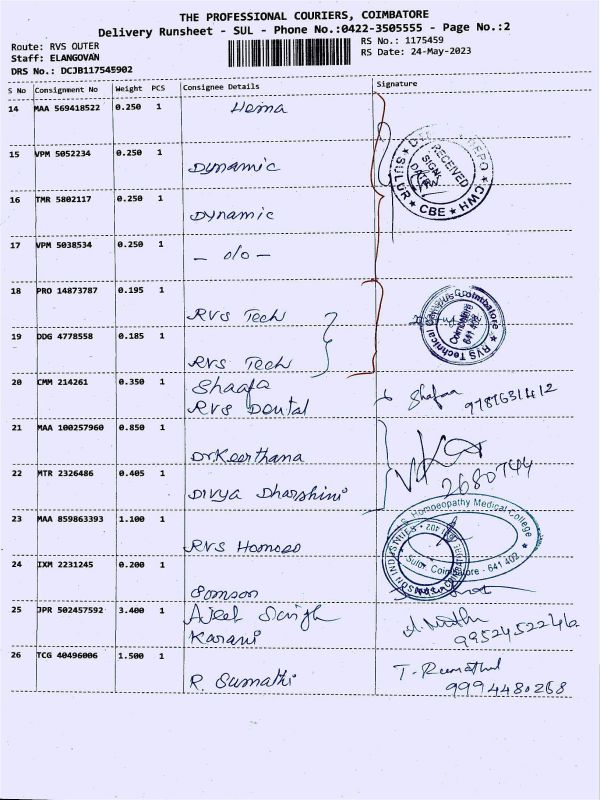 THE PROFESSIONAL COURIERS, COIMBATORE
Delivery Runsheet - SUL - Phone No.:0422-3505555 - Page No.:2
Route: RVS OUTER
RS No.: 1175459
Staff: ELANGOVAN
RS Date: 24-May-2023
DRS No.: DCJB117545902
S No Consignment No Weight PCS Consignee Details Signature
14 MAA 569418522 0.250 1 Hema
15 VPM 5052234 0.250 1
Dynamic
RECEIVED
SIGN
DATE
SULUR ★ CBE ★ CWH
16 TMR 5802117 0.250 1
Dynamic
17 VPM 5038534 0.250 1
- o/o -
18 PRO 14873787 0.195 1
RVS Tech
RVS Technical Campus Coimbatore
Coimbatore
641 402
19 DDG 4778558 0.185 1
RVS Tech
20 CMM 214261 0.350 1 Shaafa
RVS Dental
21 MAA 100257960 0.850 1
Dr Keerthana
22 MTR 2326486 0.405 1
2680744
Divya Dharshini
23 MAA 859863393 1.100 1
RVS Homoeo
Homoeopathy Medical College
Sulur, Coimbatore - 641 402.
24 IXM 2231245 0.200 1
25 JPR 502457592 3.400 1 Ajeet Singh
Karani
9952452246
26 TCG 40496006 1.500 1
R. Sumathi
9994480268